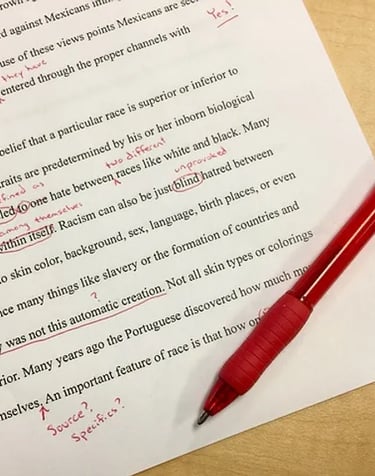 against Mexicans
Yes!
use of these views points Mexicans are
they have
entered through the proper channels with
belief that a particular race is superior or inferior to
traits are predetermined by his or her inborn biological
two different
to one hate between races like white and black. Many
as
unprovoked
among themselves
within itself. Racism can also be just blind hatred between
to skin color, background, sex, language, birth places, or even
many things like slavery or the formation of countries and
?
was not this automatic creation. Not all skin types or colorings
Many years ago the Portuguese discovered how much
An important feature of race is that how
Source?
Specifics?